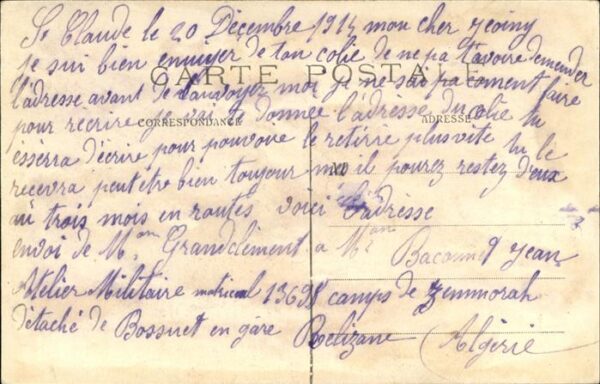 St Claude le 20 Décembre 1914 mon cher
je sui bien ennuyer de ton colie de ne pa t'avoire demender
CARTE POSTALE
l'adresse avant de l'anvoyez moi je ne sai pa coment faire
pour recrire je vai te donnee l'adresse du colie tu
CORRESPONDANCE
ADRESSE
esserra d'écrire pour pouvoire le retirre plus vite tu le
recevra peut etre bien toujour mai il pourez restez deux
ou trois mois en routes voici l'adresse
envoi de Mme Grandclément a Mr Jean
Atelier Militaire matricul camps de Zemmorah
détaché de Bossuet en gare Relizane Algérie